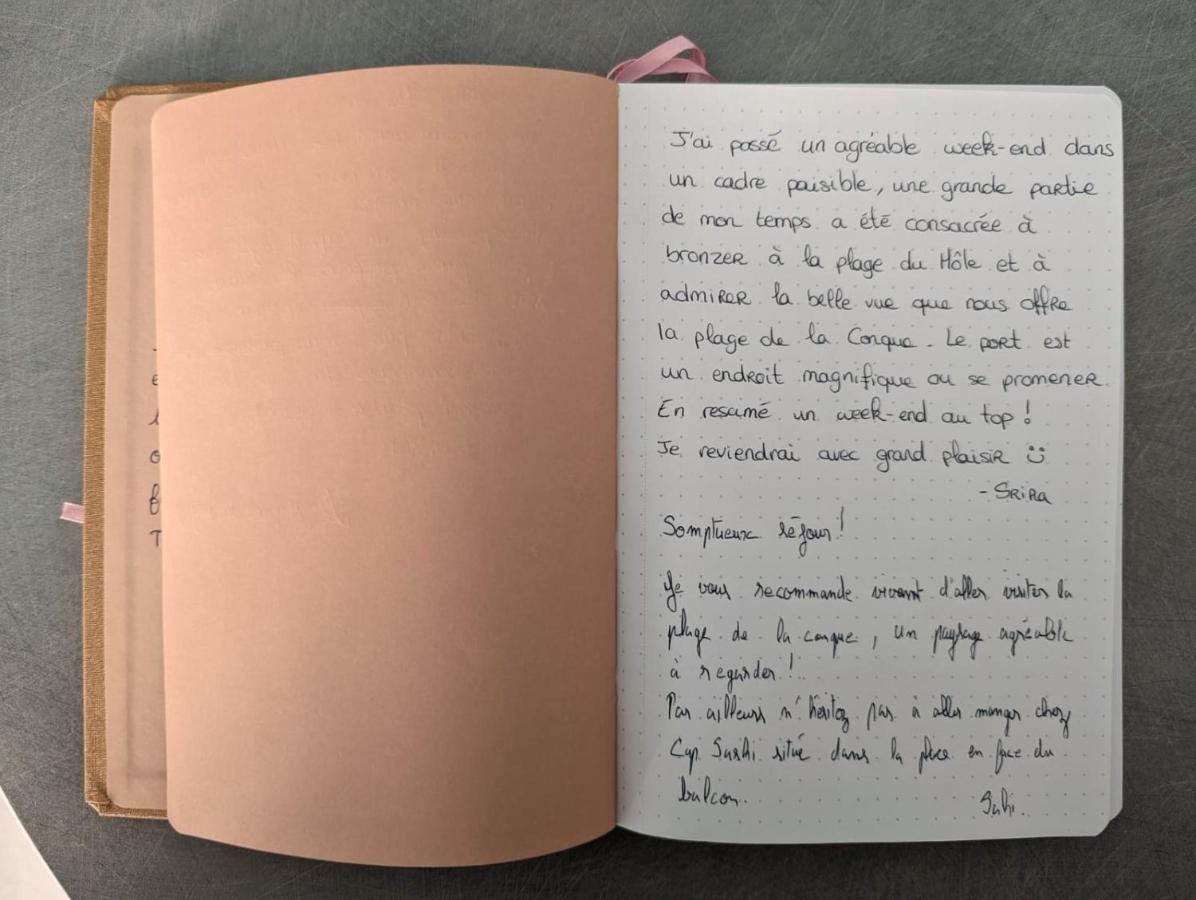 J'ai passé un agréable week-end dans
un cadre paisible, une grande partie
de mon temps a été consacrée à
bronzer à la plage du Môle et à
admirer la belle vue que nous offre
la plage de la Conque. Le port est
un endroit magnifique ou se promener.
En resumé un week-end au top !
Je reviendrai avec grand plaisir
- Srira
Somptueux séjour !
Je vous recommande vivemt d'aller visiter la
plage de la conque, un paysage agréable
à regarder !
Par ailleurs n'hésitez pas à aller manger chez
Cap Sushi situé dans la place en face du
balcon.